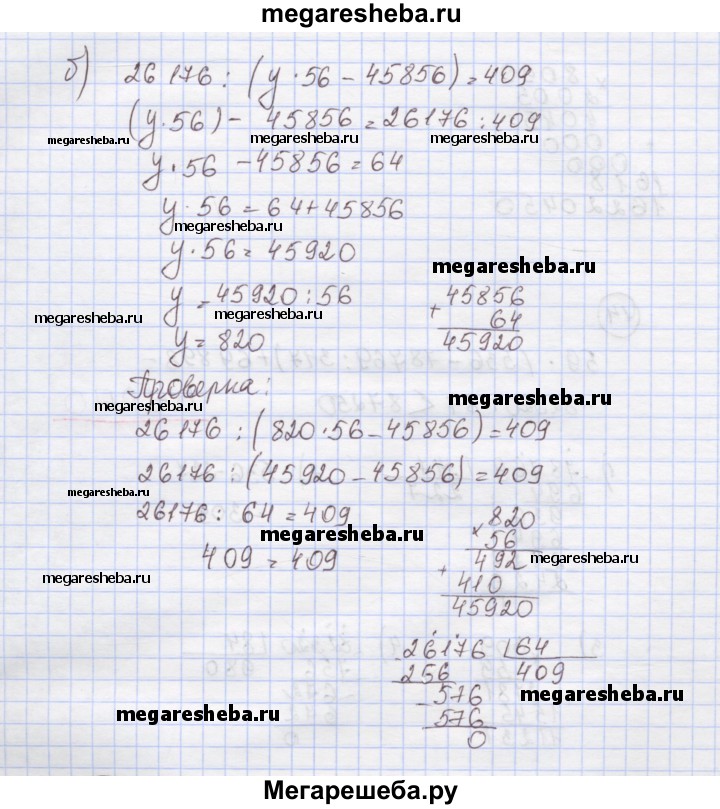 megaresheba.ru
б) 26 176 : (у·56 - 45856) = 409
(у·56) - 45856 = 26176 : 409
megaresheba.ru megaresheba.ru megaresheba.ru
у·56 - 45856 = 64
у·56 = 64 + 45856
megaresheba.ru
у·56 = 45920
megaresheba.ru
у = 45920 : 56
45856
megaresheba.ru megaresheba.ru
+ 64
у = 820
45920
Проверка:
megaresheba.ru megaresheba.ru
26176 : (820·56 - 45856) = 409
26176 : (45920 - 45856) = 409
megaresheba.ru
26176 : 64 = 409
820
megaresheba.ru
× 56
409 = 409
492
megaresheba.ru
megaresheba.ru
+ 410
45920
- 26176 64
256 409
- 576
megaresheba.ru
megaresheba.ru
576
0
Мегарешеба.ру